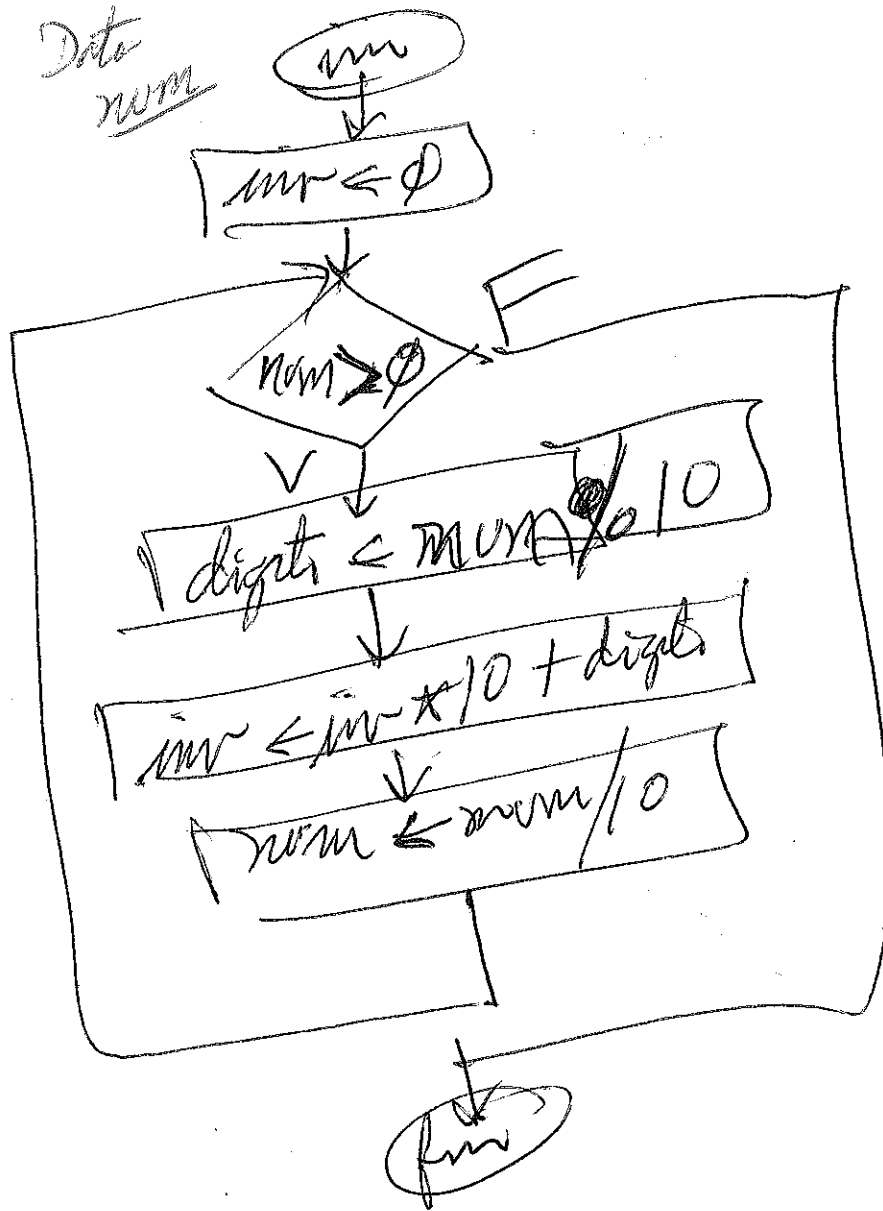 Dato
num
ini
inv ← 0
num > 0
F
V
digito ← num % 10
inv ← inv * 10 + digito
num ← num / 10
fin